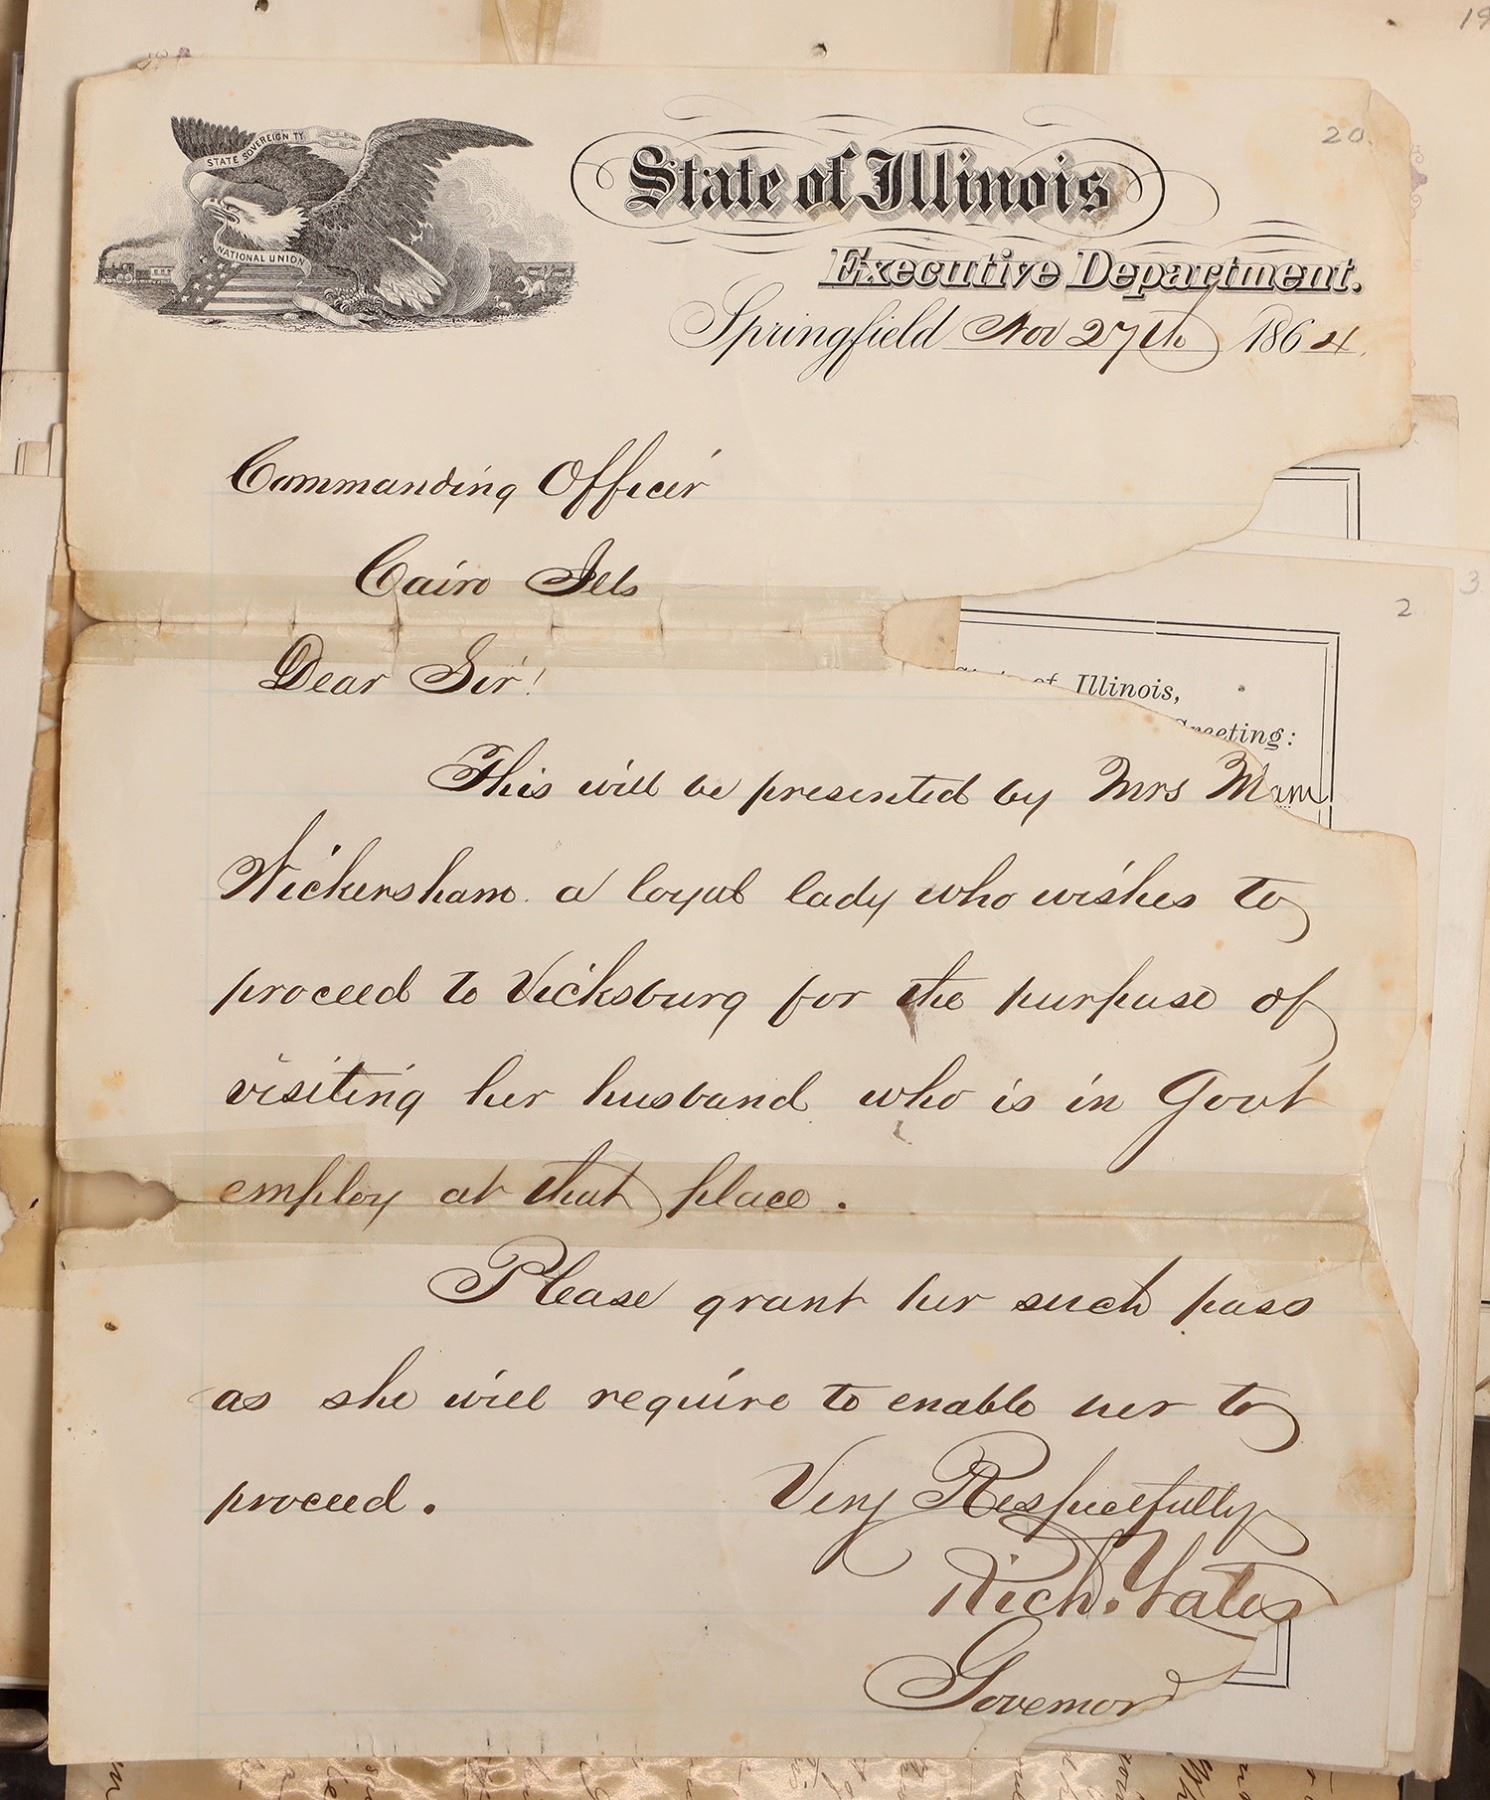 19
20.
STATE SOVEREIGNTY
NATIONAL UNION
State of Illinois
Executive Department.
Springfield Nov 27th 1864.
Commanding Officer
Cairo Ills
2
3
Dear Sir!
of Illinois,
Greeting:
This will be presented by Mrs
Wickersham. a loyal lady who wishes to
proceed to Vicksburg for the purpose of
visiting her husband who is in Govt
employ at that place.
Please grant her such pass
as she will require to enable her to
proceed.
Very Respectfully
Rich. Yates
Governor